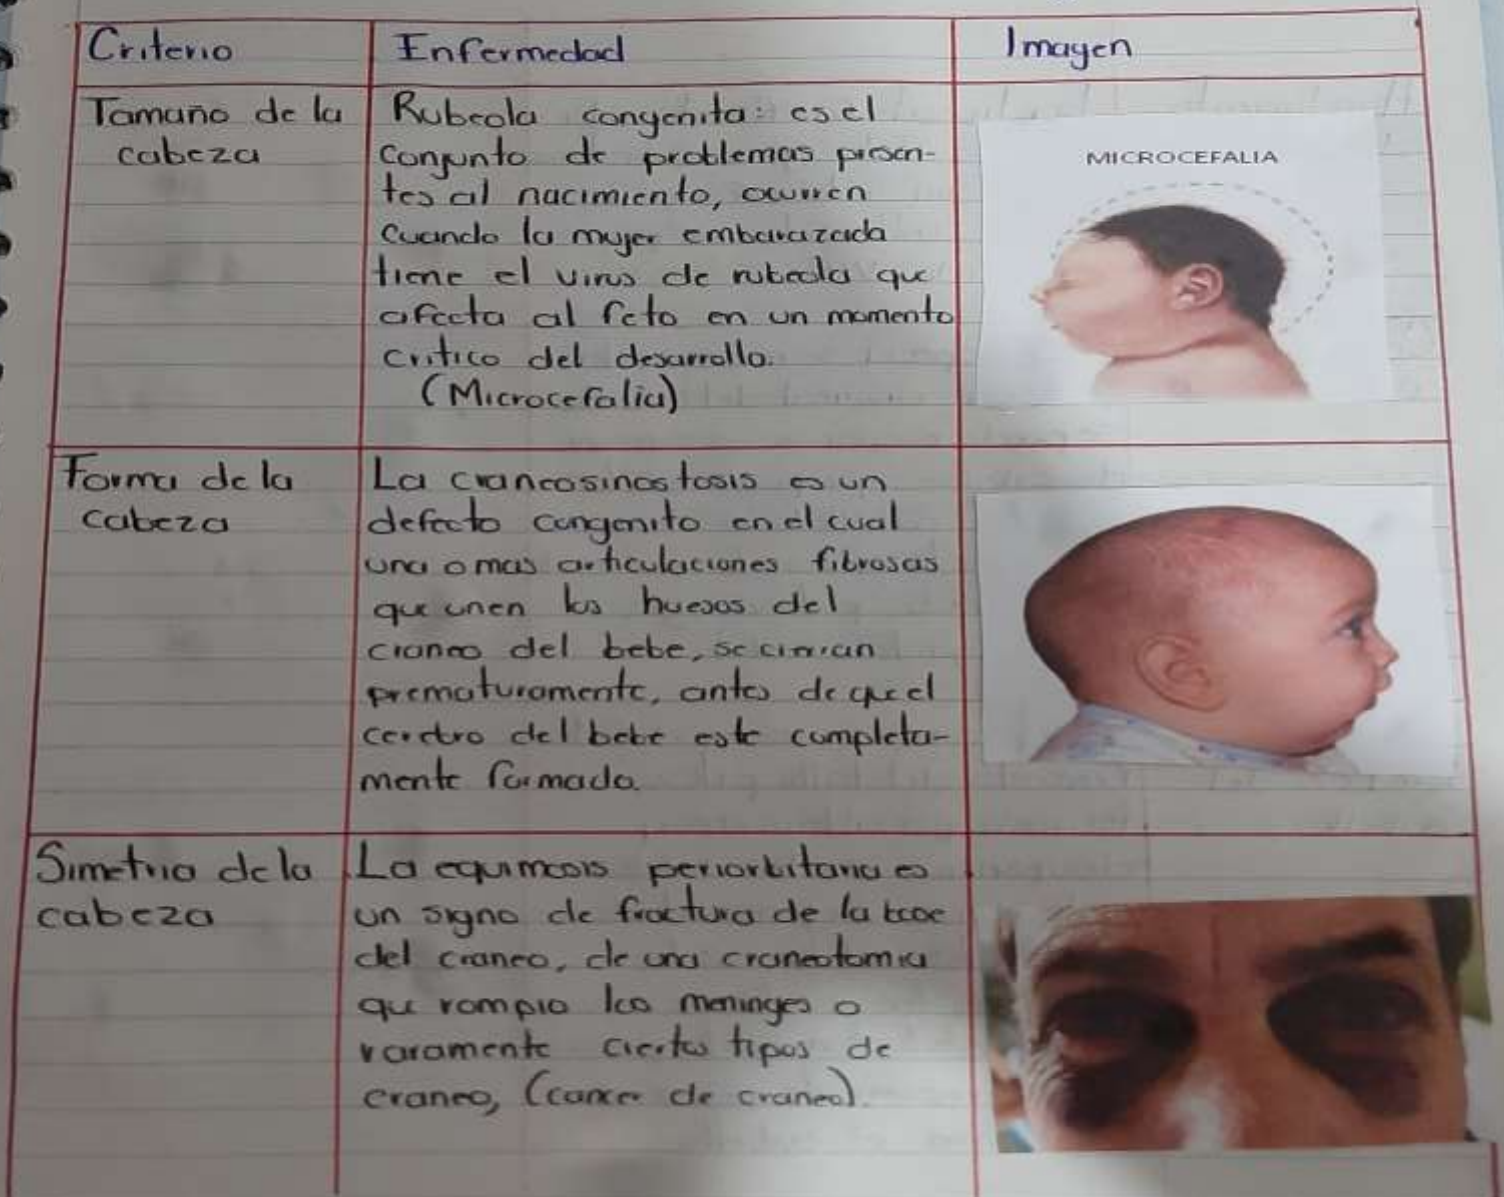 Criterio
Enfermedad
Imagen
Tamaño de la
cabeza
Rubeola congenita: es el
conjunto de problemas presen-
tes al nacimiento, ocurren
cuando la mujer embarazada
tiene el virus de rubeola que
afecta al feto en un momento
critico del desarrollo.
(Microcefalia)
MICROCEFALIA
Forma de la
cabeza
La craneosinostosis es un
defecto congenito en el cual
una o mas articulaciones fibrosas
que unen los huesos del
craneo del bebe, se cierran
prematuramente, antes de que el
cerebro del bebe este completa-
mente formado.
Simetria de la
cabeza
La equimosis periorbitaria es
un signo de fractura de la base
del craneo, de una craneotomia
que rompio las meninges o
raramente ciertos tipos de
craneo, (cancer de craneo).